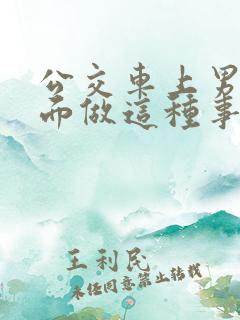 公交車上男
而做這種事
王利民
未经同意禁止转载